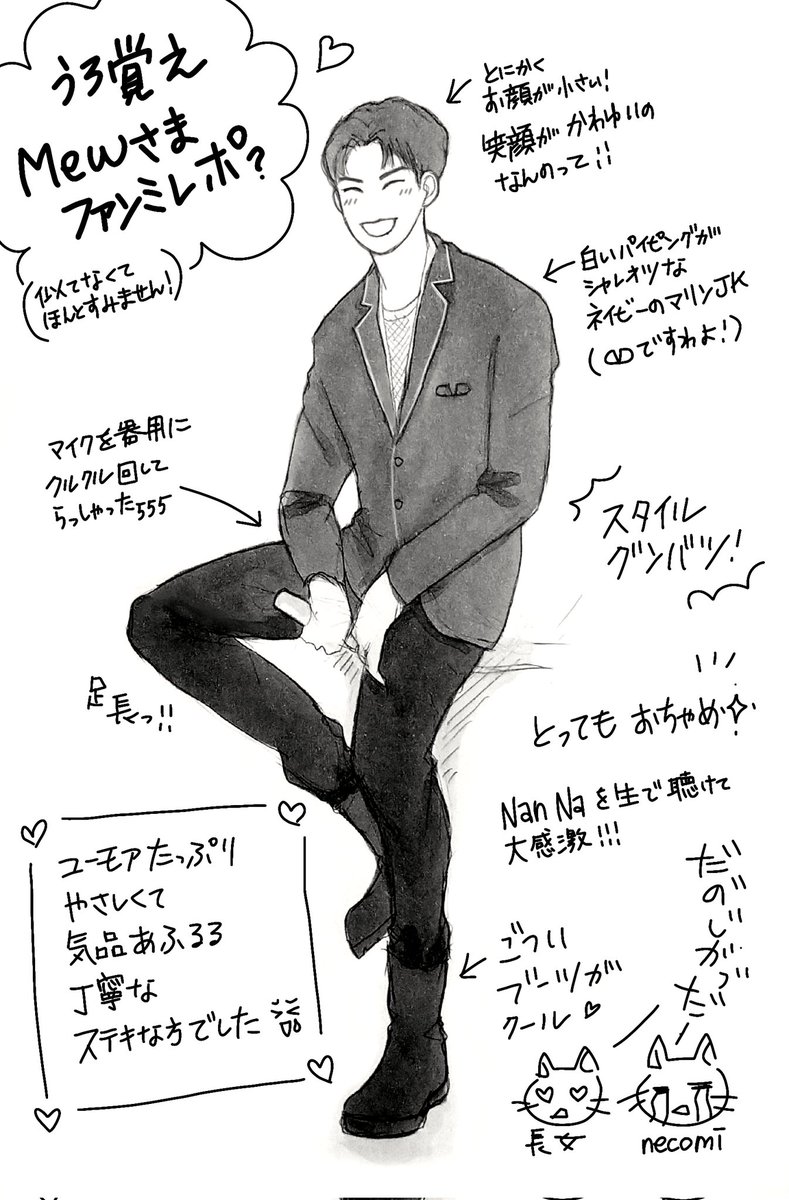 うろ覚え
Mewさま
ファンミレポ?
(似てなくて
ほんとすみません!)
とにかく
お顔が小さい!
笑顔がかわゆいの
なんのって!!
白いパイピングが
シャレオツな
ネイビーのマリンJK
(ですわよ!)
マイクを器用に
クルクル回して
らっしゃった555
スタイル
グンバツ!
足
長っ!!
とってもおちゃめ
Nan Naを生で聴けて
大感激!!!
ユーモアたっぷり
やさしくて
気品あふるる
丁寧な
ステキな方でした
ごつい
ブーツが
クール
だのじがっだ
長女
necomi